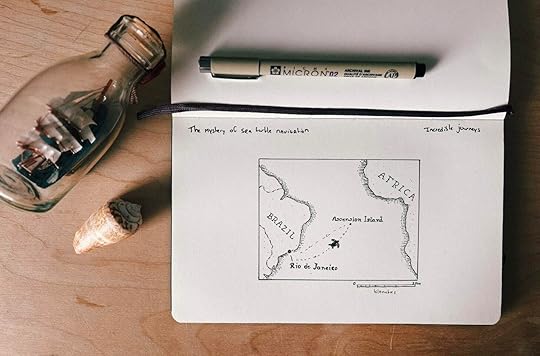 SAKURA
PIGMA
MICRON 02
ARCHIVAL INK
The mystery of sea turtle navigation
Incredible journeys
AFRICA
BRAZIL
Ascension Island
Rio de Janeiro
0
kilometres